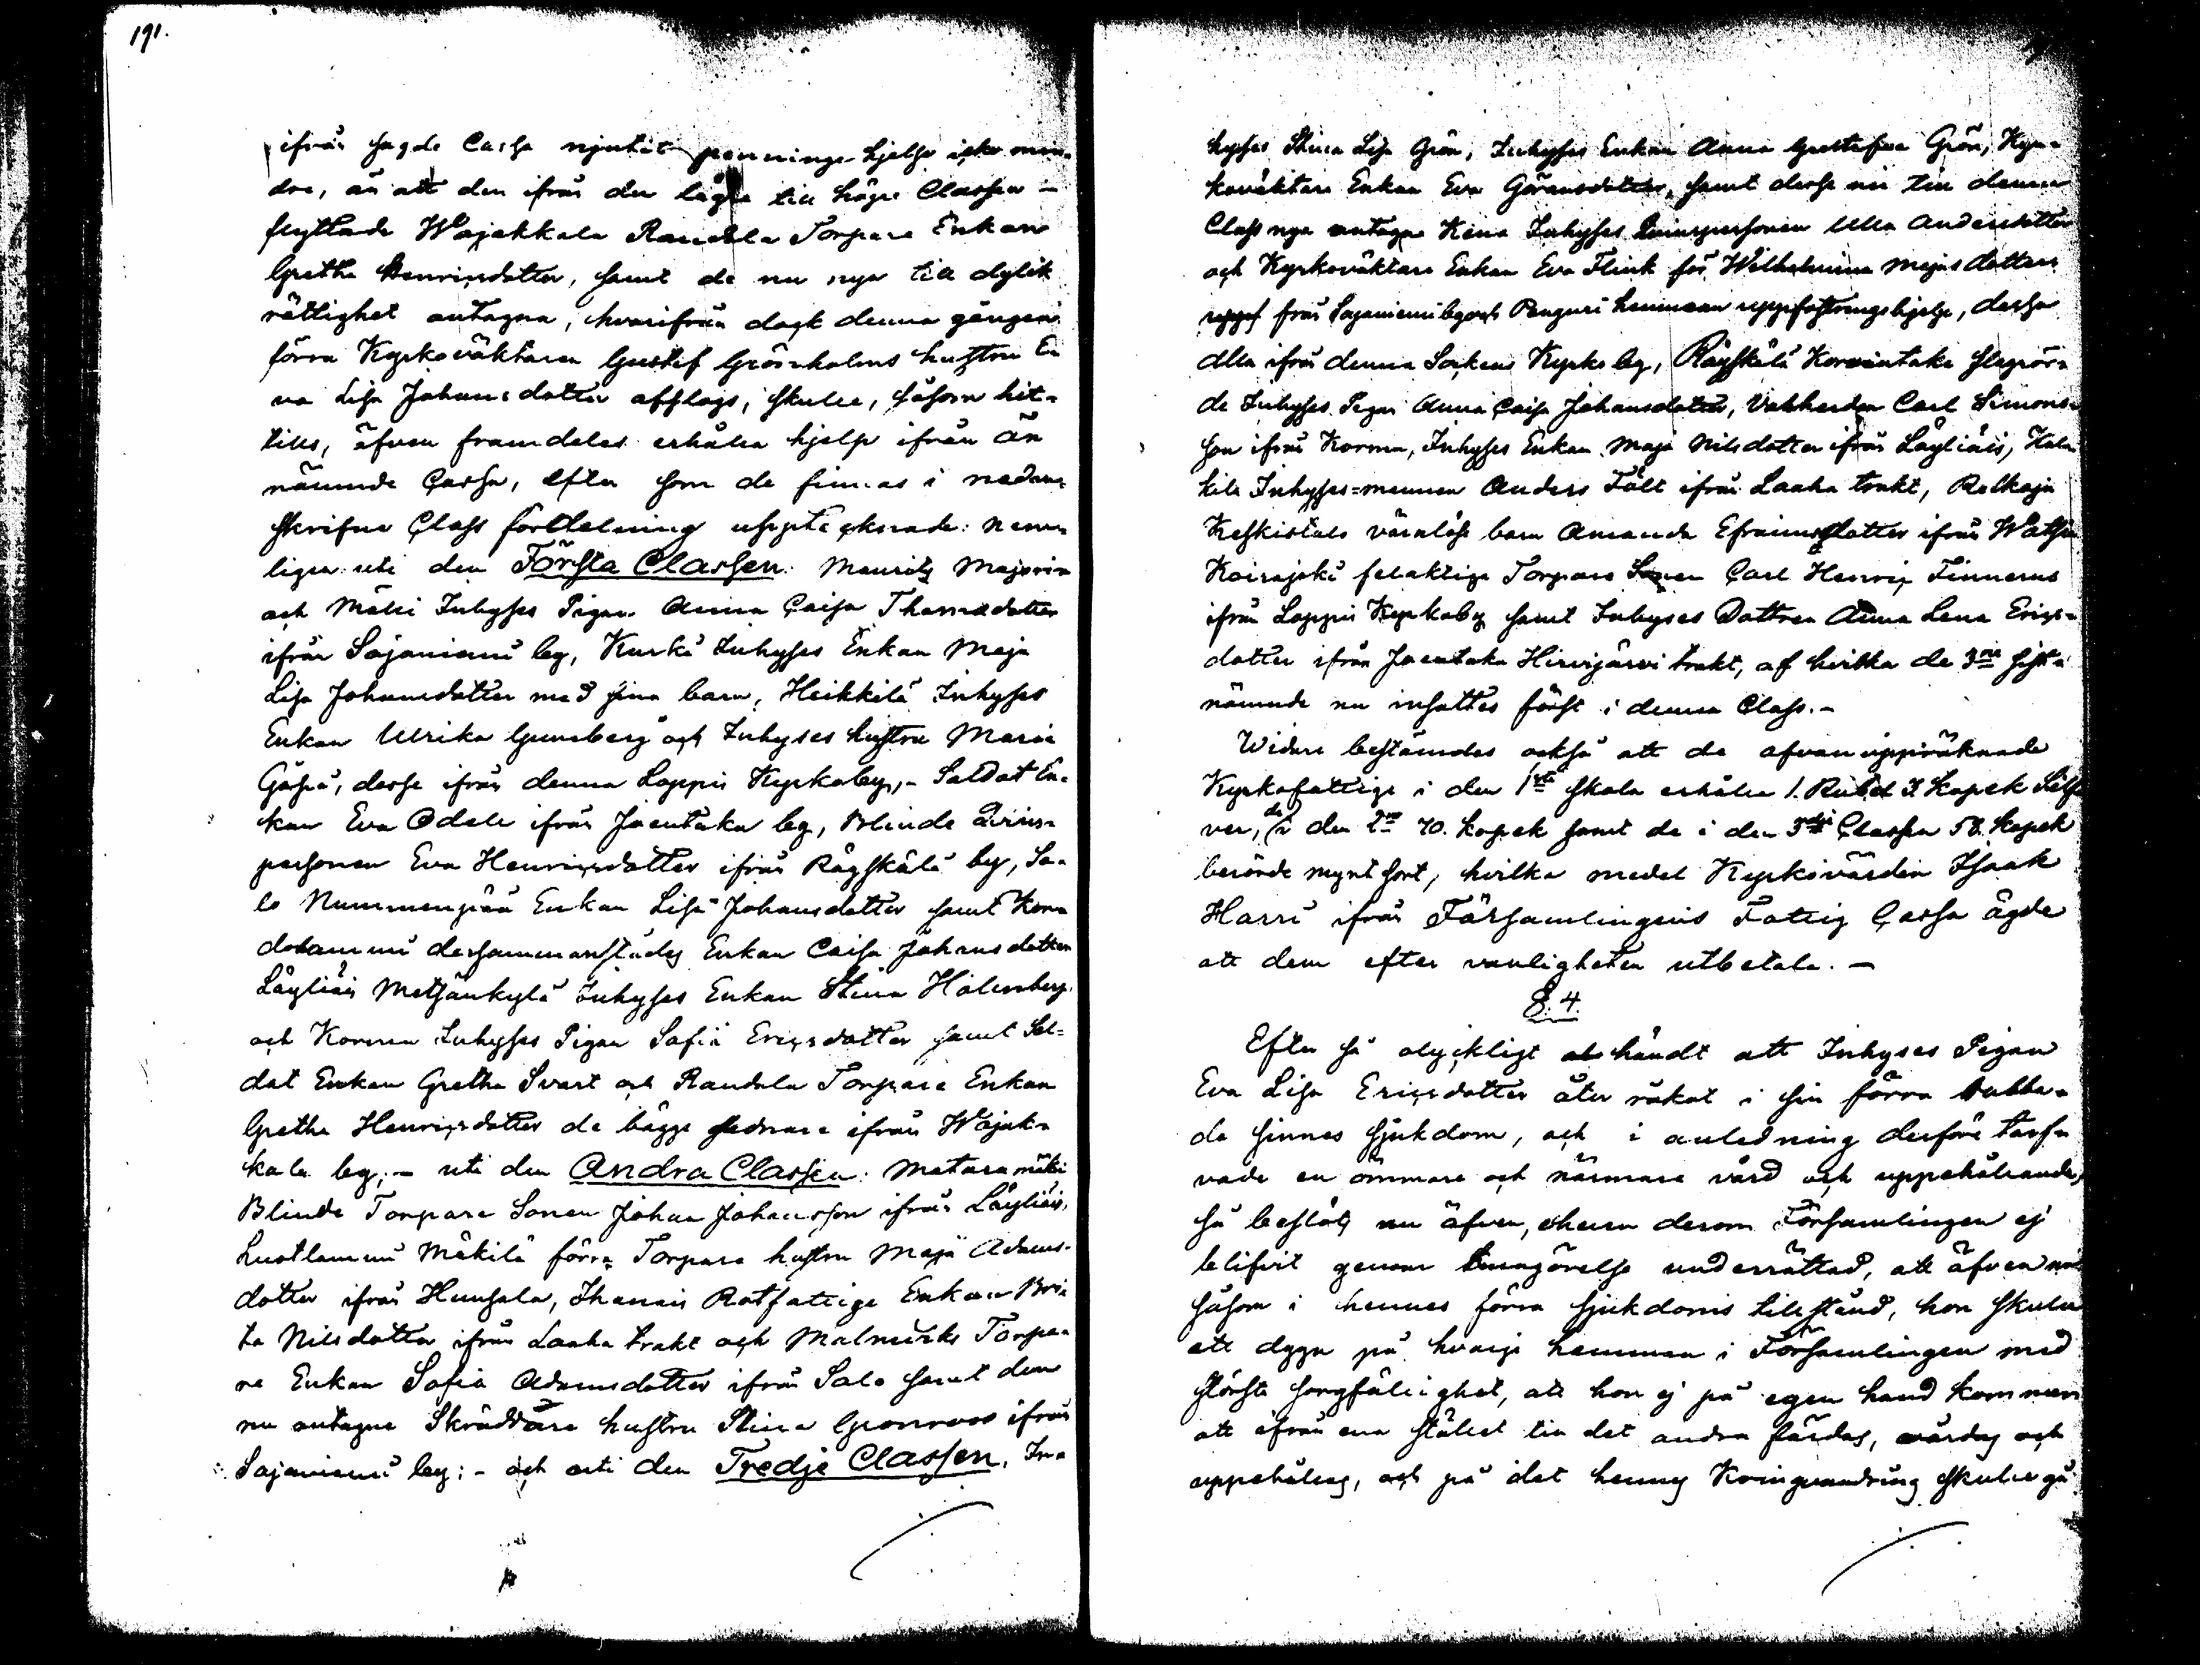 191.
ifrån sagde Cassa njutit pennings hjelp icke min-
dre, än att den ifrån den lägre till högre Classen
flyttade Wojakkala Randala Torpare Enkan
Gretha Henricsdotter, samt de nu nya till dylik
rättighet antagna, hvarifrån dock denna gången
förra Kyrkoväktaren Gustaf Grönholms hustru E-
va Lisa Johansdotter afslogs, skulle, såsom hit-
tills, äfven framdeles erhålla hjelp ifrån än
nämnde Cassa, efter som de finnas i nedan-
skrifne Class fördelning uppteknade: nemm-
ligen uti den Första Classen: Maurits Majorin
och Mäki Inhyses Pigan Anna Caisa Thomasdotter
ifrån Sajaniemi by, Kurki Inhyses Enkan Maja
Lisa Johansdotter med sina barn, Heikkilä Inhyses
Enkan Ulrika Guneberg och Inhyses hustru Maria
Gåsa, desse ifrån denna Loppis Kyrkoby, - Soldat En-
kan Eva Odell ifrån Joentaka by, Blinde Qvins-
personen Eva Henricsdotter ifrån Räyskälä by, Sa-
lo Nummenpää Enkan Lisa Johansdotter samt Kor-
dolammi dersammanstädes Enkan Caisa Johansdotter
Läyliäis Metsänkylä Inhyses Enkan Stina Holmberg
och Kormu Inhyses Pigan Sofia Ericsdotter samt Sol-
dat Enkan Gretha Svart och Randala Torpare Enkan
Gretha Henricsdotter de bägge sednare ifrån Wojak-
kala by; - uti den Andra Classen: Mataramäki
Blinde Torpare Sonen Johan Johansson ifrån Läyliäis,
Luotlammi Mäkilä förra Torpare hustru Maja Adams-
dotter ifrån Hunsala, Ihanais Rotfattige Enkan Bri-
ta Nilsdotter ifrån Laaka trakt och Malmviks Torpa-
re Enkan Sofia Adamsdotter ifrån Salo samt den
nu antagne Skräddare hustru Stina Gronroos ifrån
Sajaniemi by; - och uti den Tredje Classen, In-
hyses Stina Lisa Grön, Inhyses Enkan Anna Gustafva Grön, Kyr-
koväktare Enkan Eva Göransdotter, samt desse nu till denna
Class nya antagne Kena Inhyses Qvinspersonen Ulla Andersdotter
och Kyrkoväktare Enkan Eva Flink för Wilhelmina Majasdotters
från Sajaniemi by och Penguri hemman uppfostringshjelp, dessa
alla ifrån denna Sockens Kyrkoby, Räyskälä Korventaka slagrör-
de Inhyses Pigan Anna Caisa Johansdotter, Vakherdan Carl Simons-
son ifrån Kormu, Inhyses Enkan Maja Nilsdotter ifrån Läyliäis,
Inhyses-mannen Anders Fält ifrån Laaka trakt,
Keskitalo värnlöse barn Amanda Efraimsdotter ifrån
Koirajoki felaktige Torpare Sonen Carl Henric Finnerus
ifrån Loppis Kyrkoby samt Inhyses Dottren Anna Lena Erics-
dotter ifrån Joentaka Hirvijärvi trakt, af hvilka de 3ne sist
nämnde nu insattes först i denna Class. -
Widare bestämdes också att de ofvanuppräknade
Kyrkofattige i den 1sta skola erhålla 1. Rubel 3 Kopek Silf
ver, de i den 2dra 70. Kopek samt de i den 3dje Classen 58. Kopek
berörde myntsort, hvilka medel Kyrkovärden Isaak
Harri ifrån Församlingens Fattig Cassa ägde
att dem efter vanligheten utbetala. -
§. 4.
Efter så olyckligt händt att Inhyses Pigan
Eva Lisa Ericsdotter åter råkat i sin förra rubba-
de sinnes sjukdom, och i anledning derföre tarf-
vade en ömmare och närmare vård och uppehållande,
så beslöts nu äfven, ehuru derom Församlingen ej
blifvit genom kungörelse underrättad, att äfven nu
såsom i hennes förra sjukdoms tillstånd, hon skulle
ett dygn på hvarje hemman i Församlingen med
största sorgfällighet, att hon ej på egen hand kommer
att ifrån ena stället till det andra färdas, vårdas och
uppehållas, och på det hennes Kringvandring skulle gå